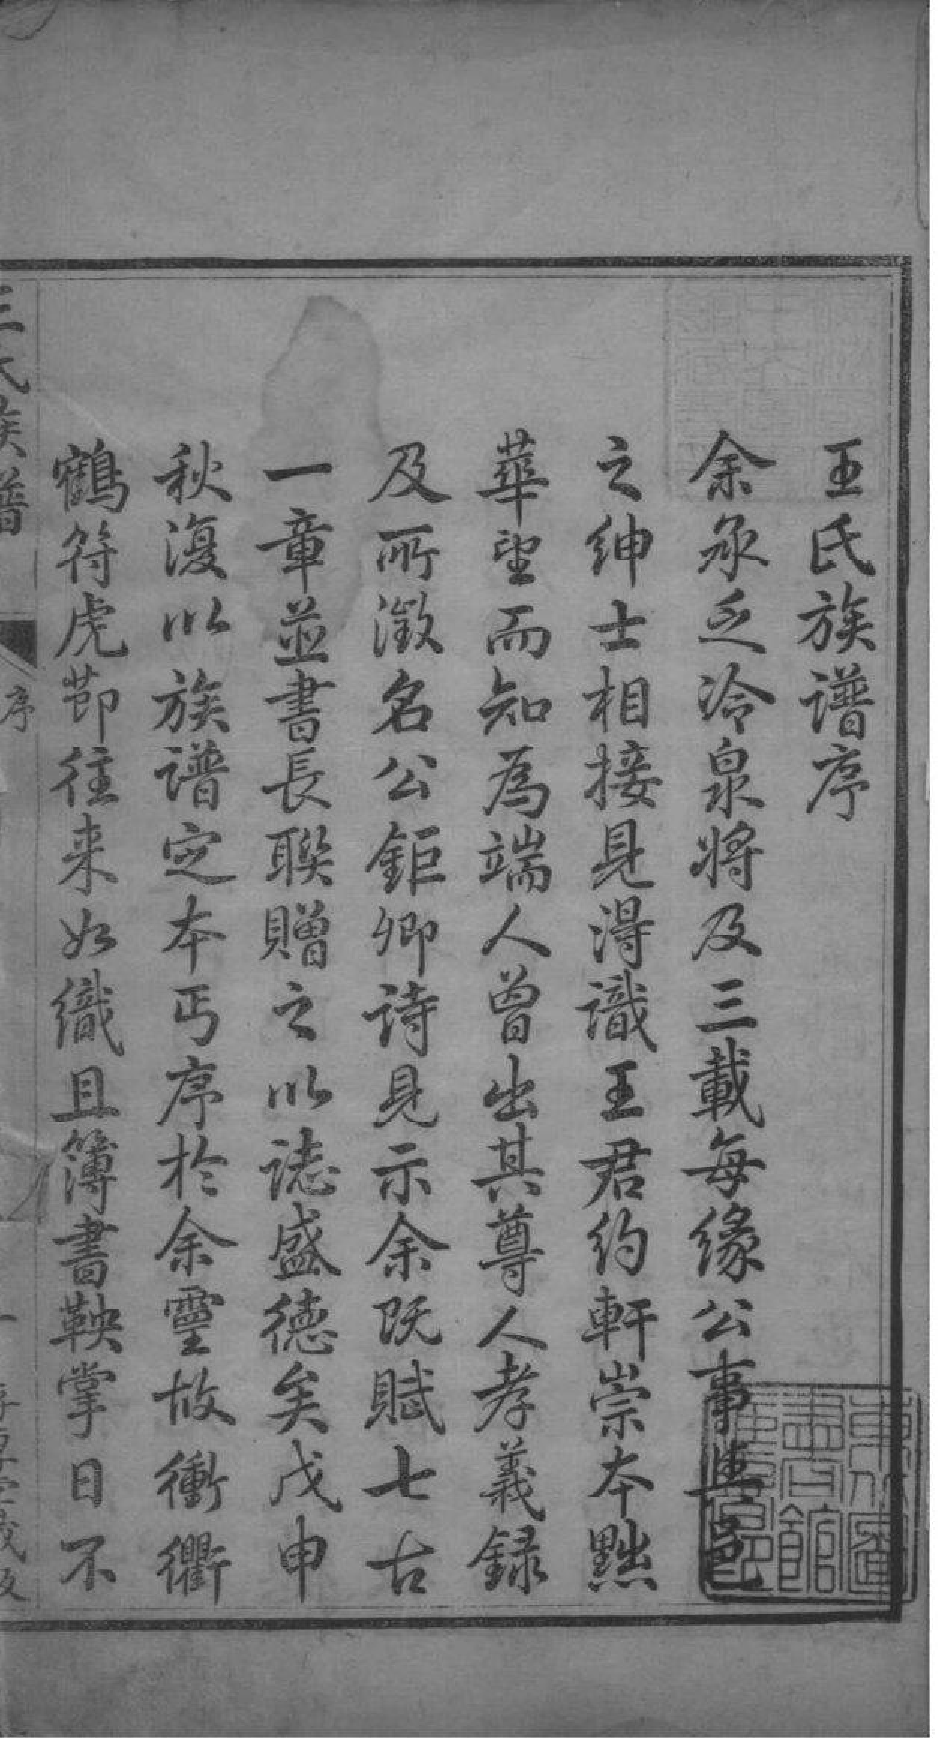 王氏族譜序
余承乏冷泉將及三載每緣公事與邑
之紳士相接見得識王君約軒崇本黜
華望而知為端人曾出其尊人孝義錄
及所徵名公鉅卿詩見示余既賦七古
一章並書長聯贈之以誌盛德矣戊申
秋復以族譜定本丐序於余靈故衝衢
鶴符虎節往来如織且簿書鞅掌日不
王氏族譜
序
一